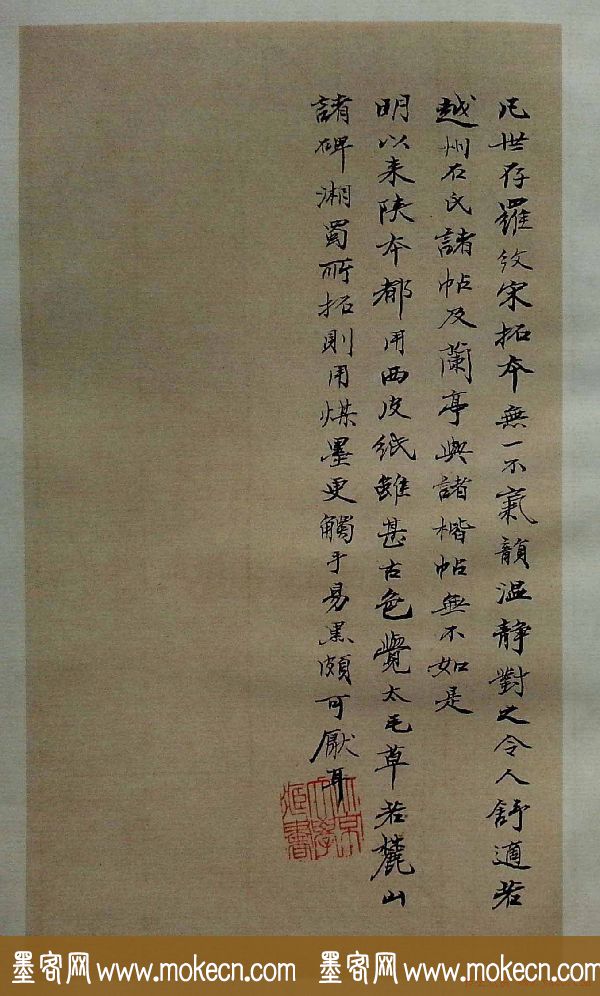 凡世存羅紋宋拓本無一不氣韻溫靜對之令人舒適若
越州石氏諸帖及蘭亭與諸楷帖無不如是
明以来陕本都用西皮紙雖甚古色覺太毛草若麓山
諸碑湘蜀所拓則用煤墨更觸手易黑頗可厭耳
墨客网 www.mokecn.com 墨客网 www.mokecn.com